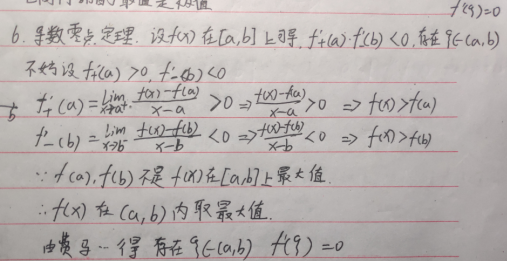 f'(ξ)=0
6. 导数零点定理. 设f(x)在[a,b]上可导, f'₊(a)·f'₋(b)<0, 存在ξ∈(a,b)
不妨设 f'₊(a)>0, f'₋(b)<0
f'₊(a)=lim x→a⁺ (f(x)-f(a))/(x-a) >0 ⇒ (f(x)-f(a))/(x-a) >0 ⇒ f(x)>f(a)
f'₋(b)=lim x→b⁻ (f(x)-f(b))/(x-b) <0 ⇒ (f(x)-f(b))/(x-b) <0 ⇒ f(x)>f(b)
∵ f(a), f(b) 不是 f(x)在[a,b]上最大值.
∴ f(x) 在 (a,b) 内取最大值.
由费马一得 存在ξ∈(a,b) f'(ξ)=0